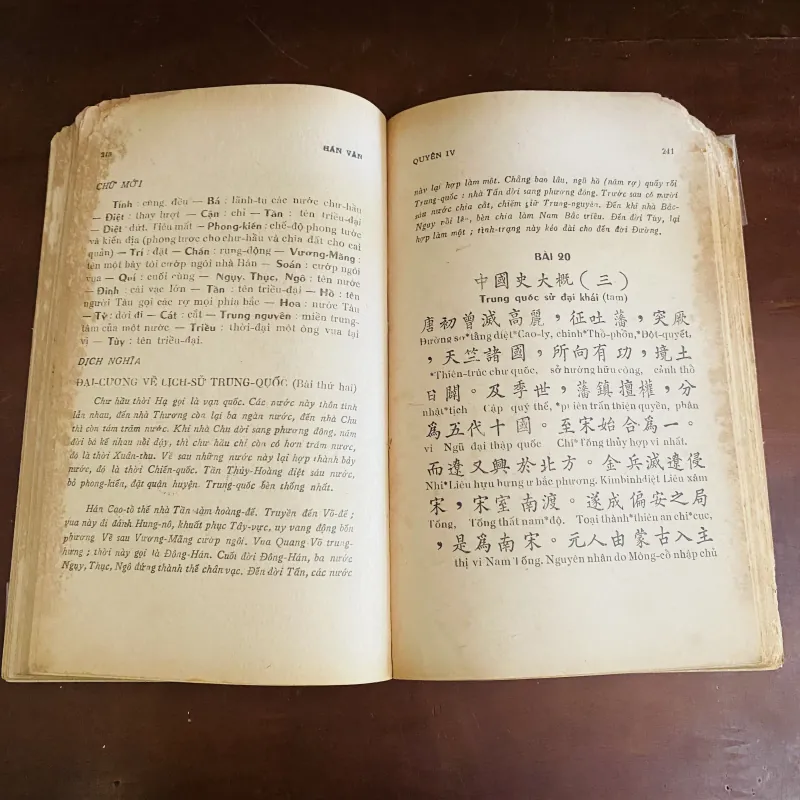 HÁN VĂN
CHỮ MỚI
Tính : cùng, đều — Bá : lãnh-tụ các nước chư-hầu
— Điệt : thay lượt — Cận : chỉ — Tần : tên triều-đại
— Diệt : dứt. Tiêu mất — Phong-kiến : chế-độ phong tước
và kiến địa (phong tước cho chư-hầu và chia đất cho cai
quản) — Trí : đặt — Chấn : rung-động — Vương-Mãng :
tên một bầy tôi cướp ngôi nhà Hán — Soán : cướp ngôi
vua — Quí : cuối cùng — Ngụy, Thục, Ngô : tên nước
— Đỉnh : cái vạc lớn — Tấn : tên triều-đại — Hồ : tên
người Tàu gọi các rợ mọi phía bắc — Hoa : nước Tàu
— Tỷ : dời đi — Cát : cắt — Trung nguyên : miền trung-
tâm của một nước — Triều : thời-đại một ông vua tại
vì — Tùy : tên triều-đại.
DỊCH NGHĨA
ĐẠI-CƯƠNG VỀ LỊCH-SỬ TRUNG-QUỐC (Bài thứ hai)
Chư hầu thời Hạ gọi là vạn quốc. Các nước này thôn tính
lẫn nhau, đến nhà Thương còn lại ba ngàn nước, đến nhà Chu
thì còn tám trăm nước. Khi nhà Chu dời sang phương đông, năm
đời bá kế nhau nổi dậy, thì chư hầu chỉ còn có hơn trăm nước,
đó là thời Xuân-thu. Về sau những nước này lại hợp thành bảy
nước, đó là thời Chiến-quốc. Tần Thủy-Hoàng diệt sáu nước,
bỏ phong-kiến, đặt quận huyện. Trung-quốc bèn thống nhất.
Hán Cao-tổ thế nhà Tần làm hoàng-đế. Truyền đến Võ-đế ;
vua này đi đánh Hung-nô, khuất phục Tây-vực, uy vang động bốn
phương Về sau Vương-Mãng cướp ngôi. Vua Quang Võ trung-
hưng ; thời này gọi là Đông-Hán. Cuối đời Đông-Hán, ba nước
Ngụy, Thục, Ngô đứng thành thế chân vạc. Đến đời Tấn, các nước
QUYỂN IV
241
này lại hợp làm một. Chẳng bao lâu, ngũ hồ (năm rợ) quấy rối
Trung-quốc : nhà Tấn dời sang phương đông. Trước sau có mười
sáu nước chia cắt, chiếm giữ Trung-nguyên. Đến khi nhà Bắc-
Ngụy nổi lên, bèn chia làm Nam Bắc triều. Đến đời Tùy, lại
hợp làm một ; tình-trạng này kéo dài cho đến đời Đường.
BÀI 20
中國史大概（三）
Trung quốc sử đại khái (tam)
唐初曾滅高麗，征吐藩，突厥
Đường sơ tằng diệt Cao-ly, chinh Thổ-phồn, Đột-quyết,
，天竺諸國，所向有功，境土
Thiên-trúc chư quốc, sở hướng hữu công, cảnh thổ
日闢。及季世，藩鎮擅權，分
nhật tịch Cập quý thế, phiên trấn thiện quyền, phân
為五代十國。至宋始合為一。
vi Ngũ đại thập quốc Chí Tống thủy hợp vi nhất.
而遼又興於北方。金兵滅遼侵
Nhi Liêu hựu hưng ư bắc phương. Kim binh diệt Liêu xâm
宋，宋室南渡。遂成偏安之局
Tống, Tống thất nam độ. Toại thành thiên an chi cục,
，是為南宋。元人由蒙古入主
thị vi Nam Tống. Nguyên nhân do Mông-cổ nhập chủ